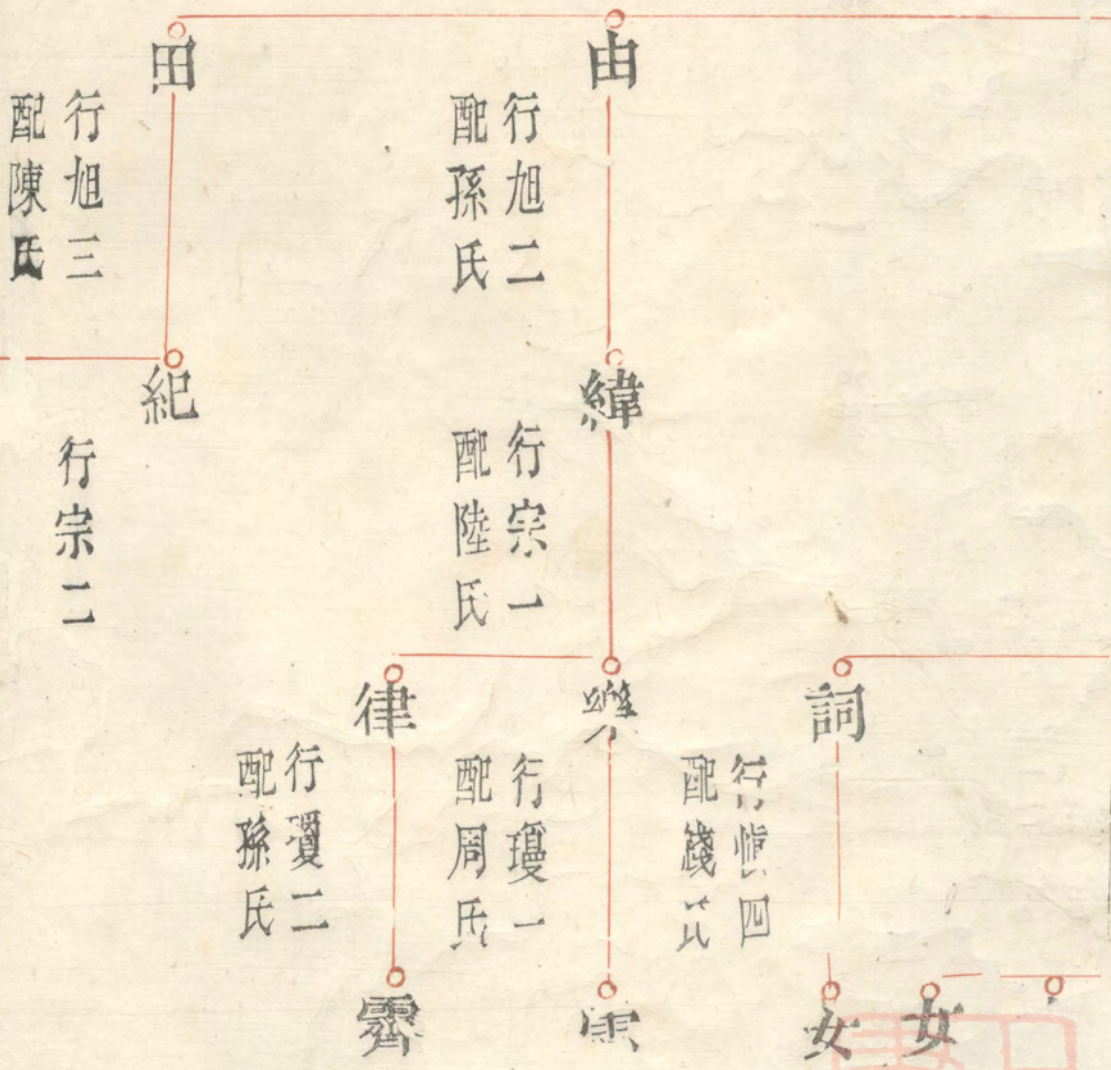 由
行旭二
配孫氏
田
行旭三
配陳氏
緯
行宗一
配陸氏
紀
行宗二
詞
行慎四
配錢氏
樂
行瓊一
配周氏
律
行瓊二
配孫氏
女
女
霽